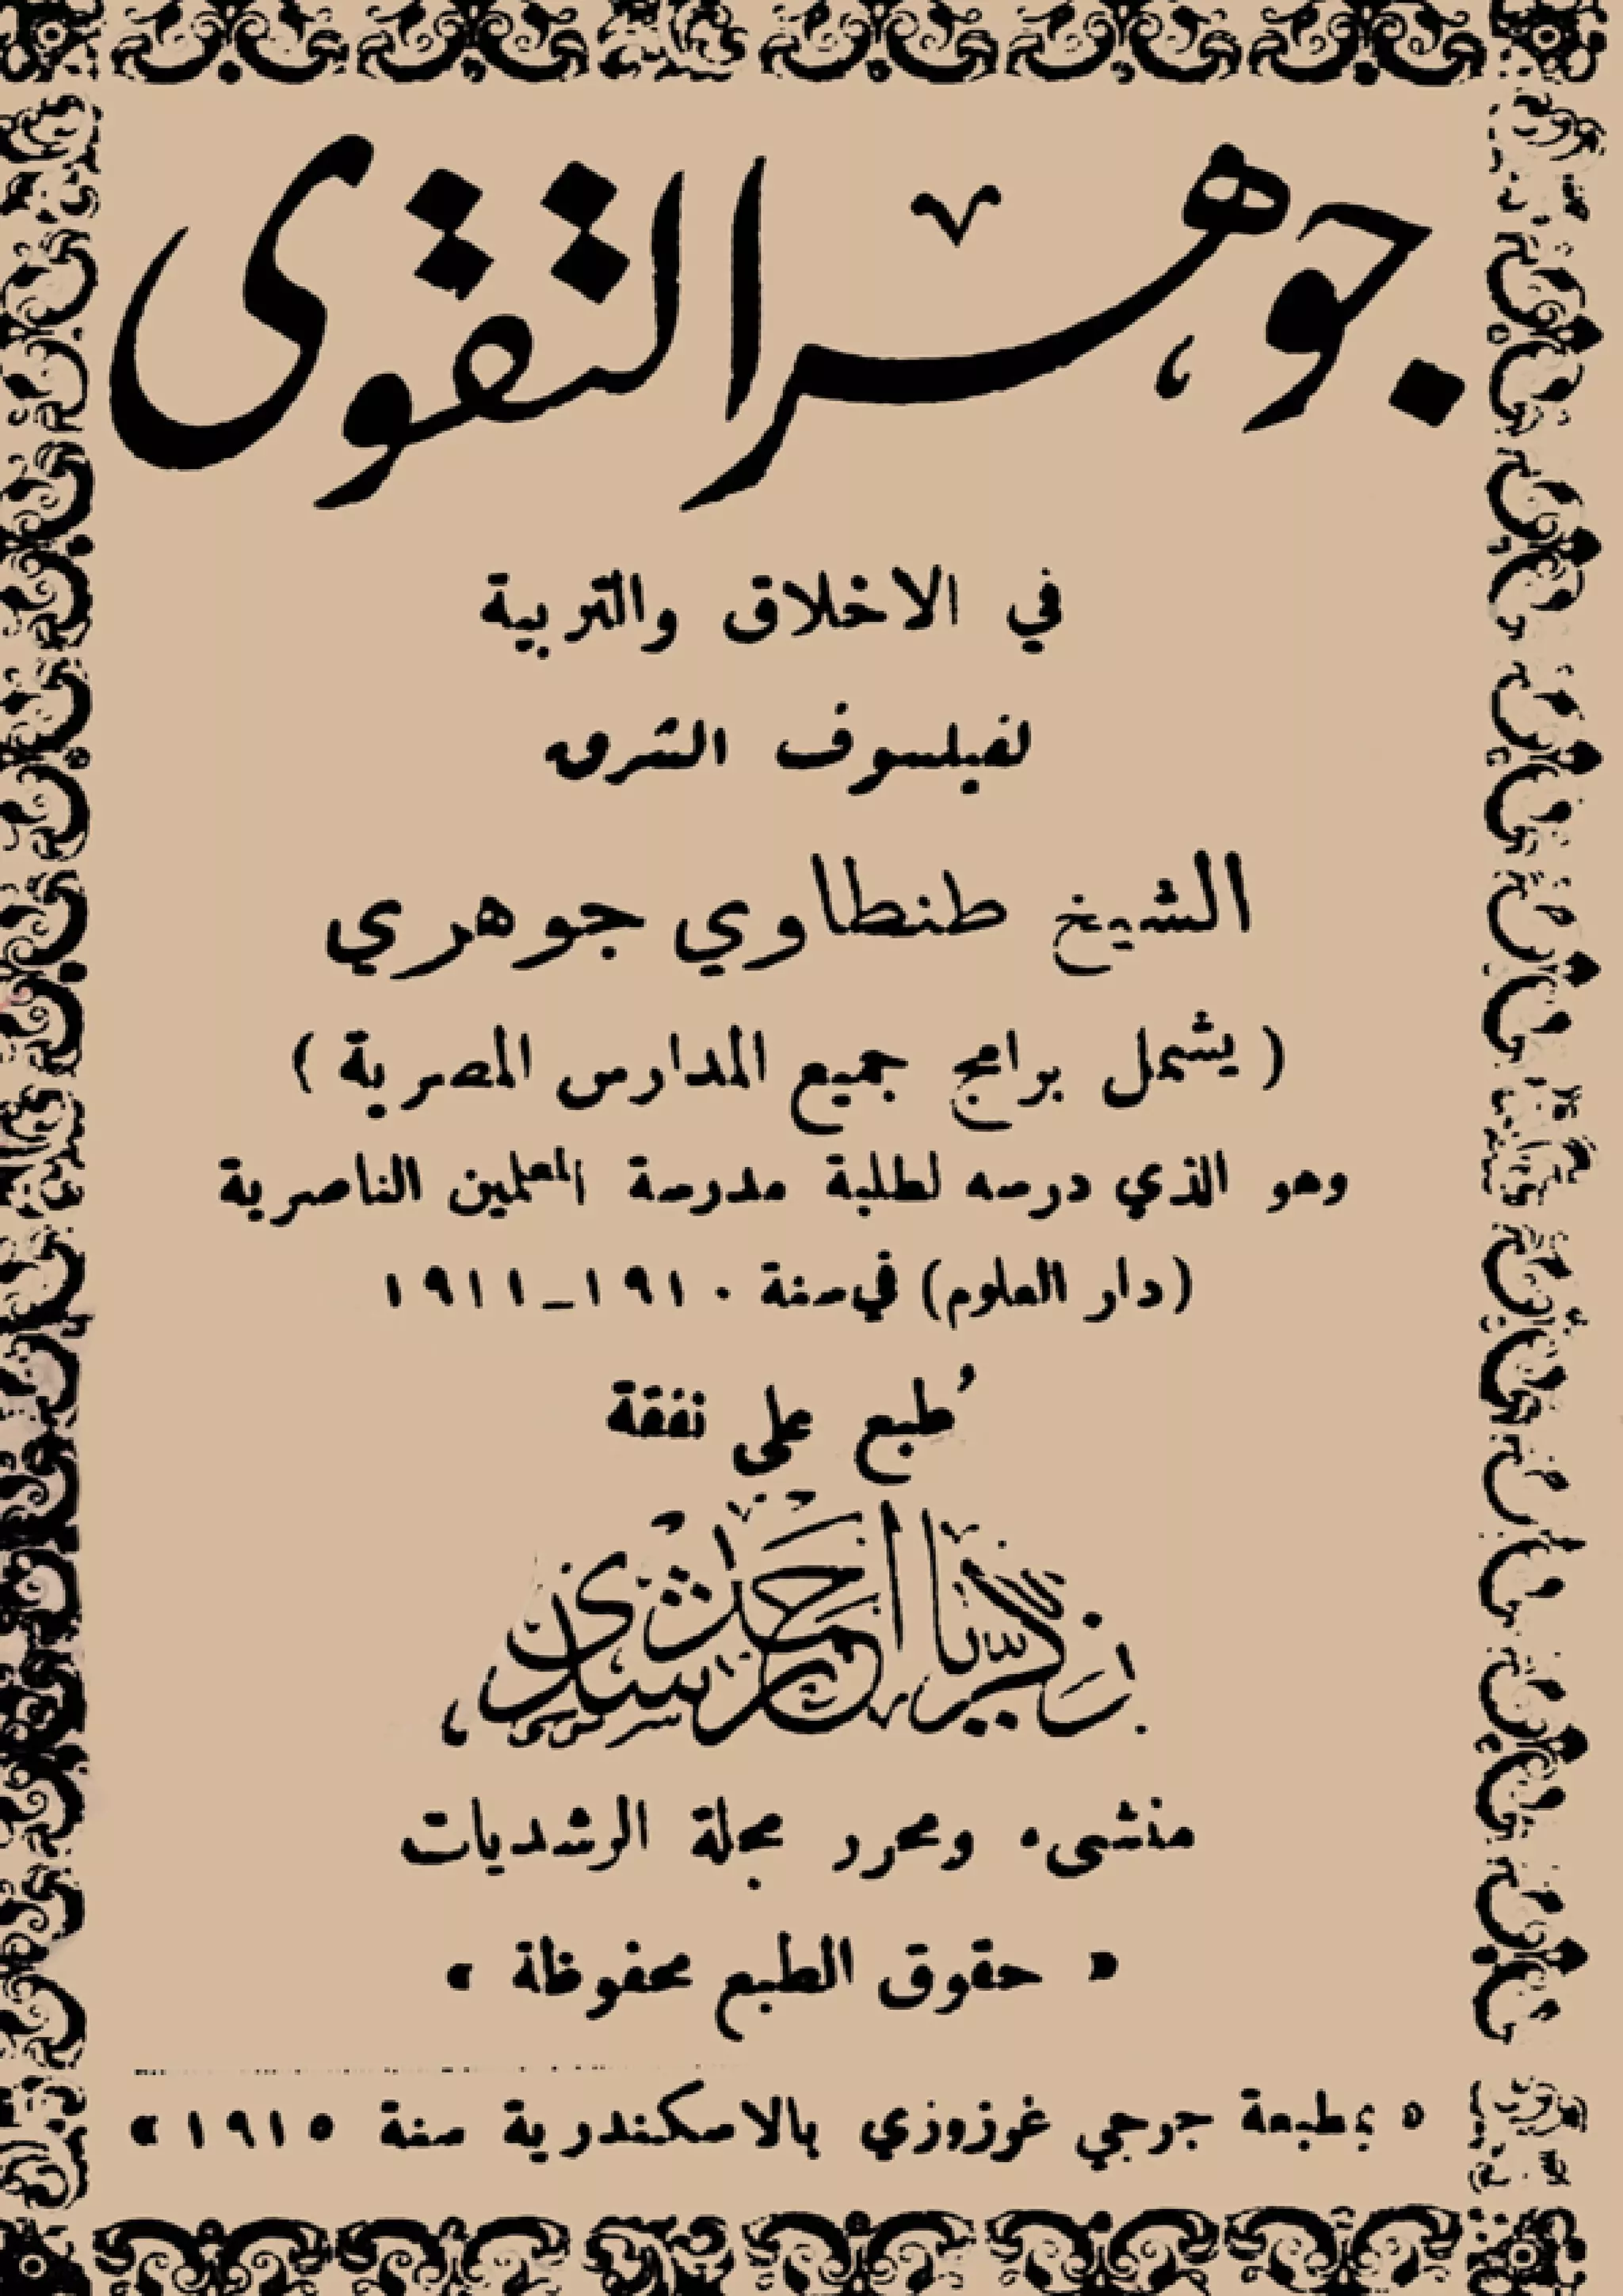 جوهر التقوى
في الاخلاق والتربية
لفيلسوف الشرق
الشيخ طنطاوي جوهري
( يشمل برامج جميع المدارس المصرية )
وهو الذي درسه لطلبة مدرسة المعلمين الناصرية
(دار العلوم) في سنة ١٩١٠ـ١٩١١
طُبع على نفقة
زكريا أحمد رشدي
منشىء ومحرر مجلة الرشديات
« حقوق الطبع محفوظة »
« بمطبعة جرجي غرزوزي بالاسكندرية سنة ١٩١٥ »